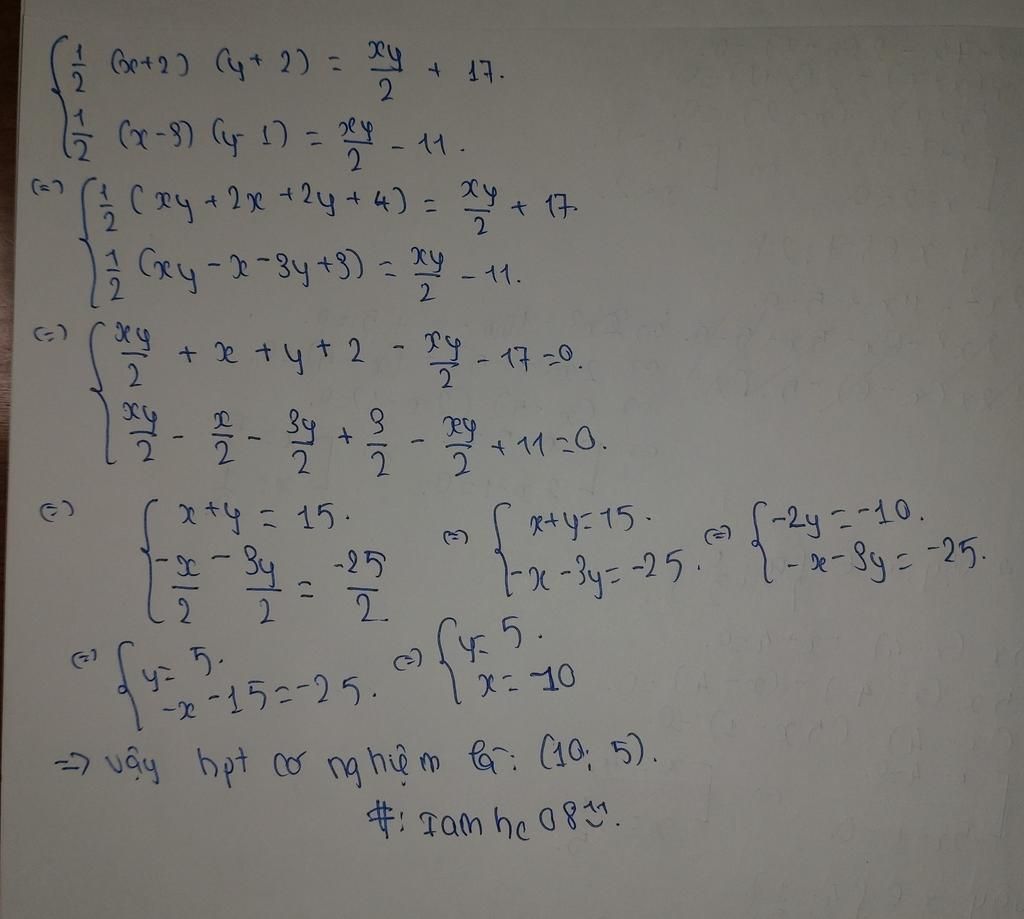 { 1/2 (x+2) (y+2) = xy/2 + 17.
1/2 (x-3) (y-1) = xy/2 - 11.
(=) { 1/2 (xy + 2x + 2y + 4) = xy/2 + 17.
1/2 (xy - x - 3y + 3) = xy/2 - 11.
(=) { xy/2 + x + y + 2 - xy/2 - 17 = 0.
xy/2 - x/2 - 3y/2 + 3/2 - xy/2 + 11 = 0.
(=) { x + y = 15. (=) { x + y = 15. (=) { -2y = -10.
-x/2 - 3y/2 = -25/2. -x - 3y = -25. -x - 3y = -25.
(=) { y = 5. (=) { y = 5.
-x - 15 = -25. x = 10
=> vậy hpt có nghiệm là: (10; 5).
#: Iam hc 08